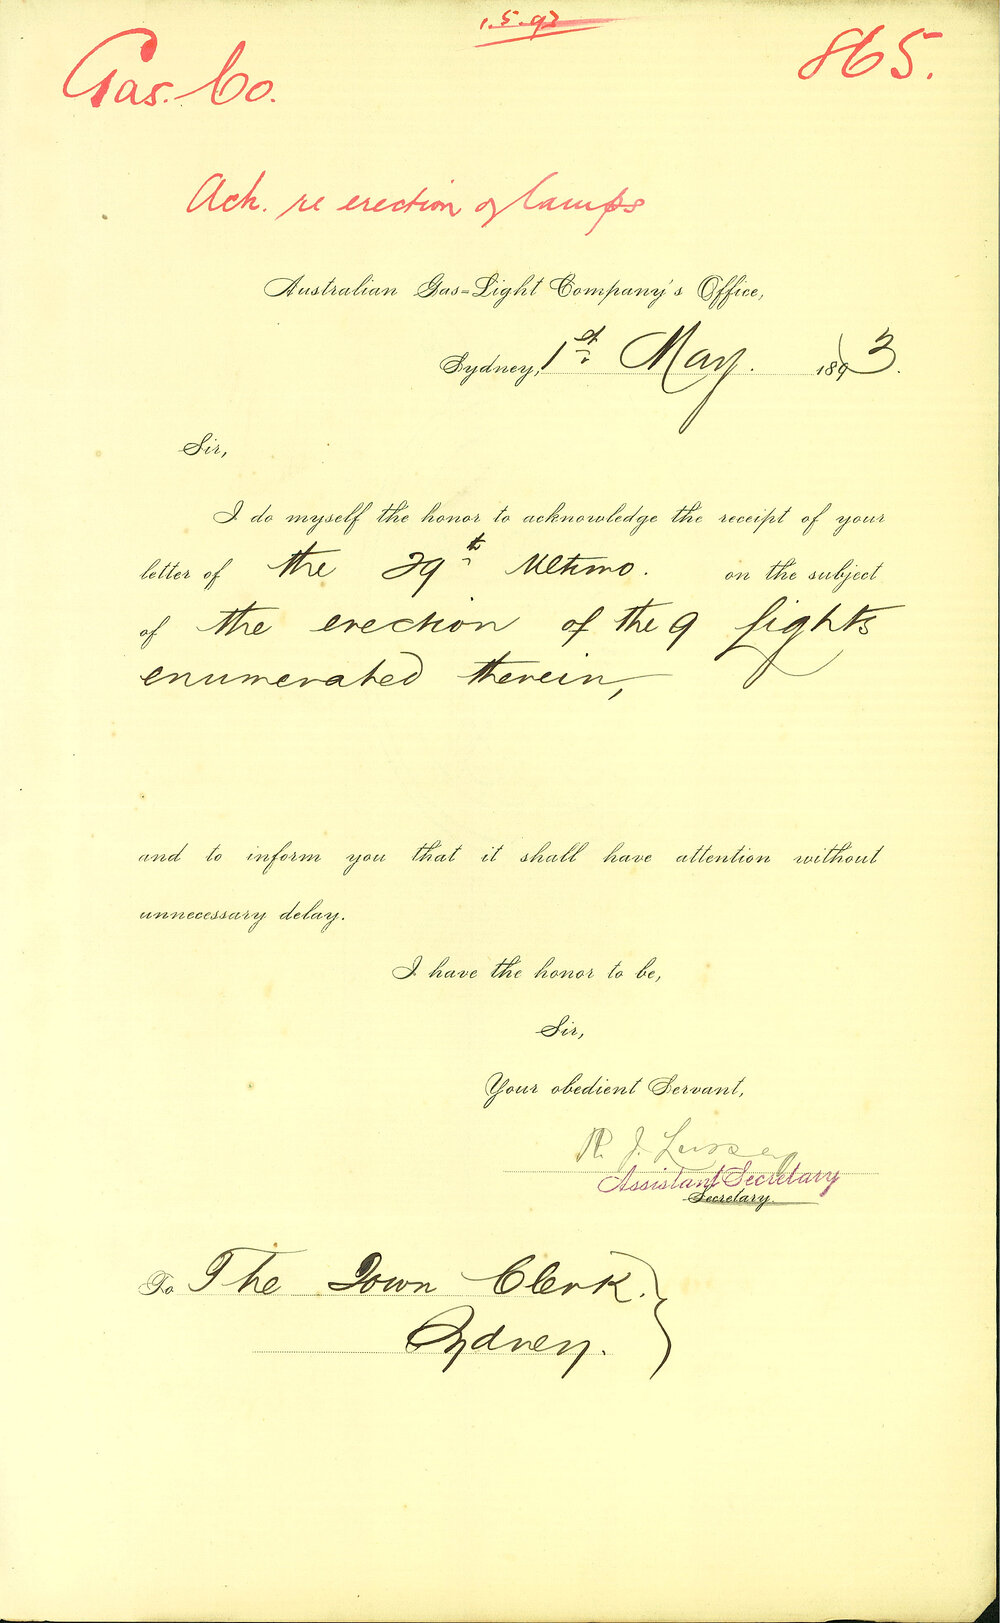 1.5.93
Gas. Co.
865.
Ack. re erection of lamps
Australian Gas-Light Company's Office,
Sydney, 1st May. 1893.
Sir,
I do myself the honor to acknowledge the receipt of your
letter of the 29th Ultimo. on the subject
of the erection of the 9 lights
enumerated therein,
and to inform you that it shall have attention without
unnecessary delay.
I have the honor to be,
Sir,
Your obedient Servant,
R. J.
Assistant Secretary
Secretary.
To The Town Clerk.
Sydney.